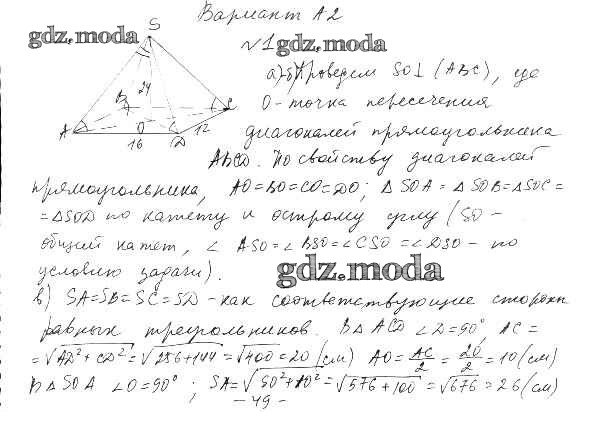 Вариант А2
gdz.moda
№1 gdz.moda
а), б) Проведем SO⊥(ABC), где
O - точка пересечения
диагоналей прямоугольника
ABCD. По свойству диагоналей
S
24
B
C
A
O
D
12
16
прямоугольника, AO=BO=CO=DO; △SOA=△SOB=△SOC=
=△SOD по катету и острому углу (SO -
общий катет, ∠ASO=∠BSO=∠CSO=∠DSO - по
условию задачи).
gdz.moda
в) SA=SB=SC=SD - как соответствующие стороны
равных треугольников. В △ACD ∠D=90°, AC=
=√AD²+CD²=√256+144=√400=20(см) AO=AC/2=20/2=10(см)
В △SOA ∠O=90°; SA=√SO²+AO²=√576+100=√676=26(см)
- 49 -